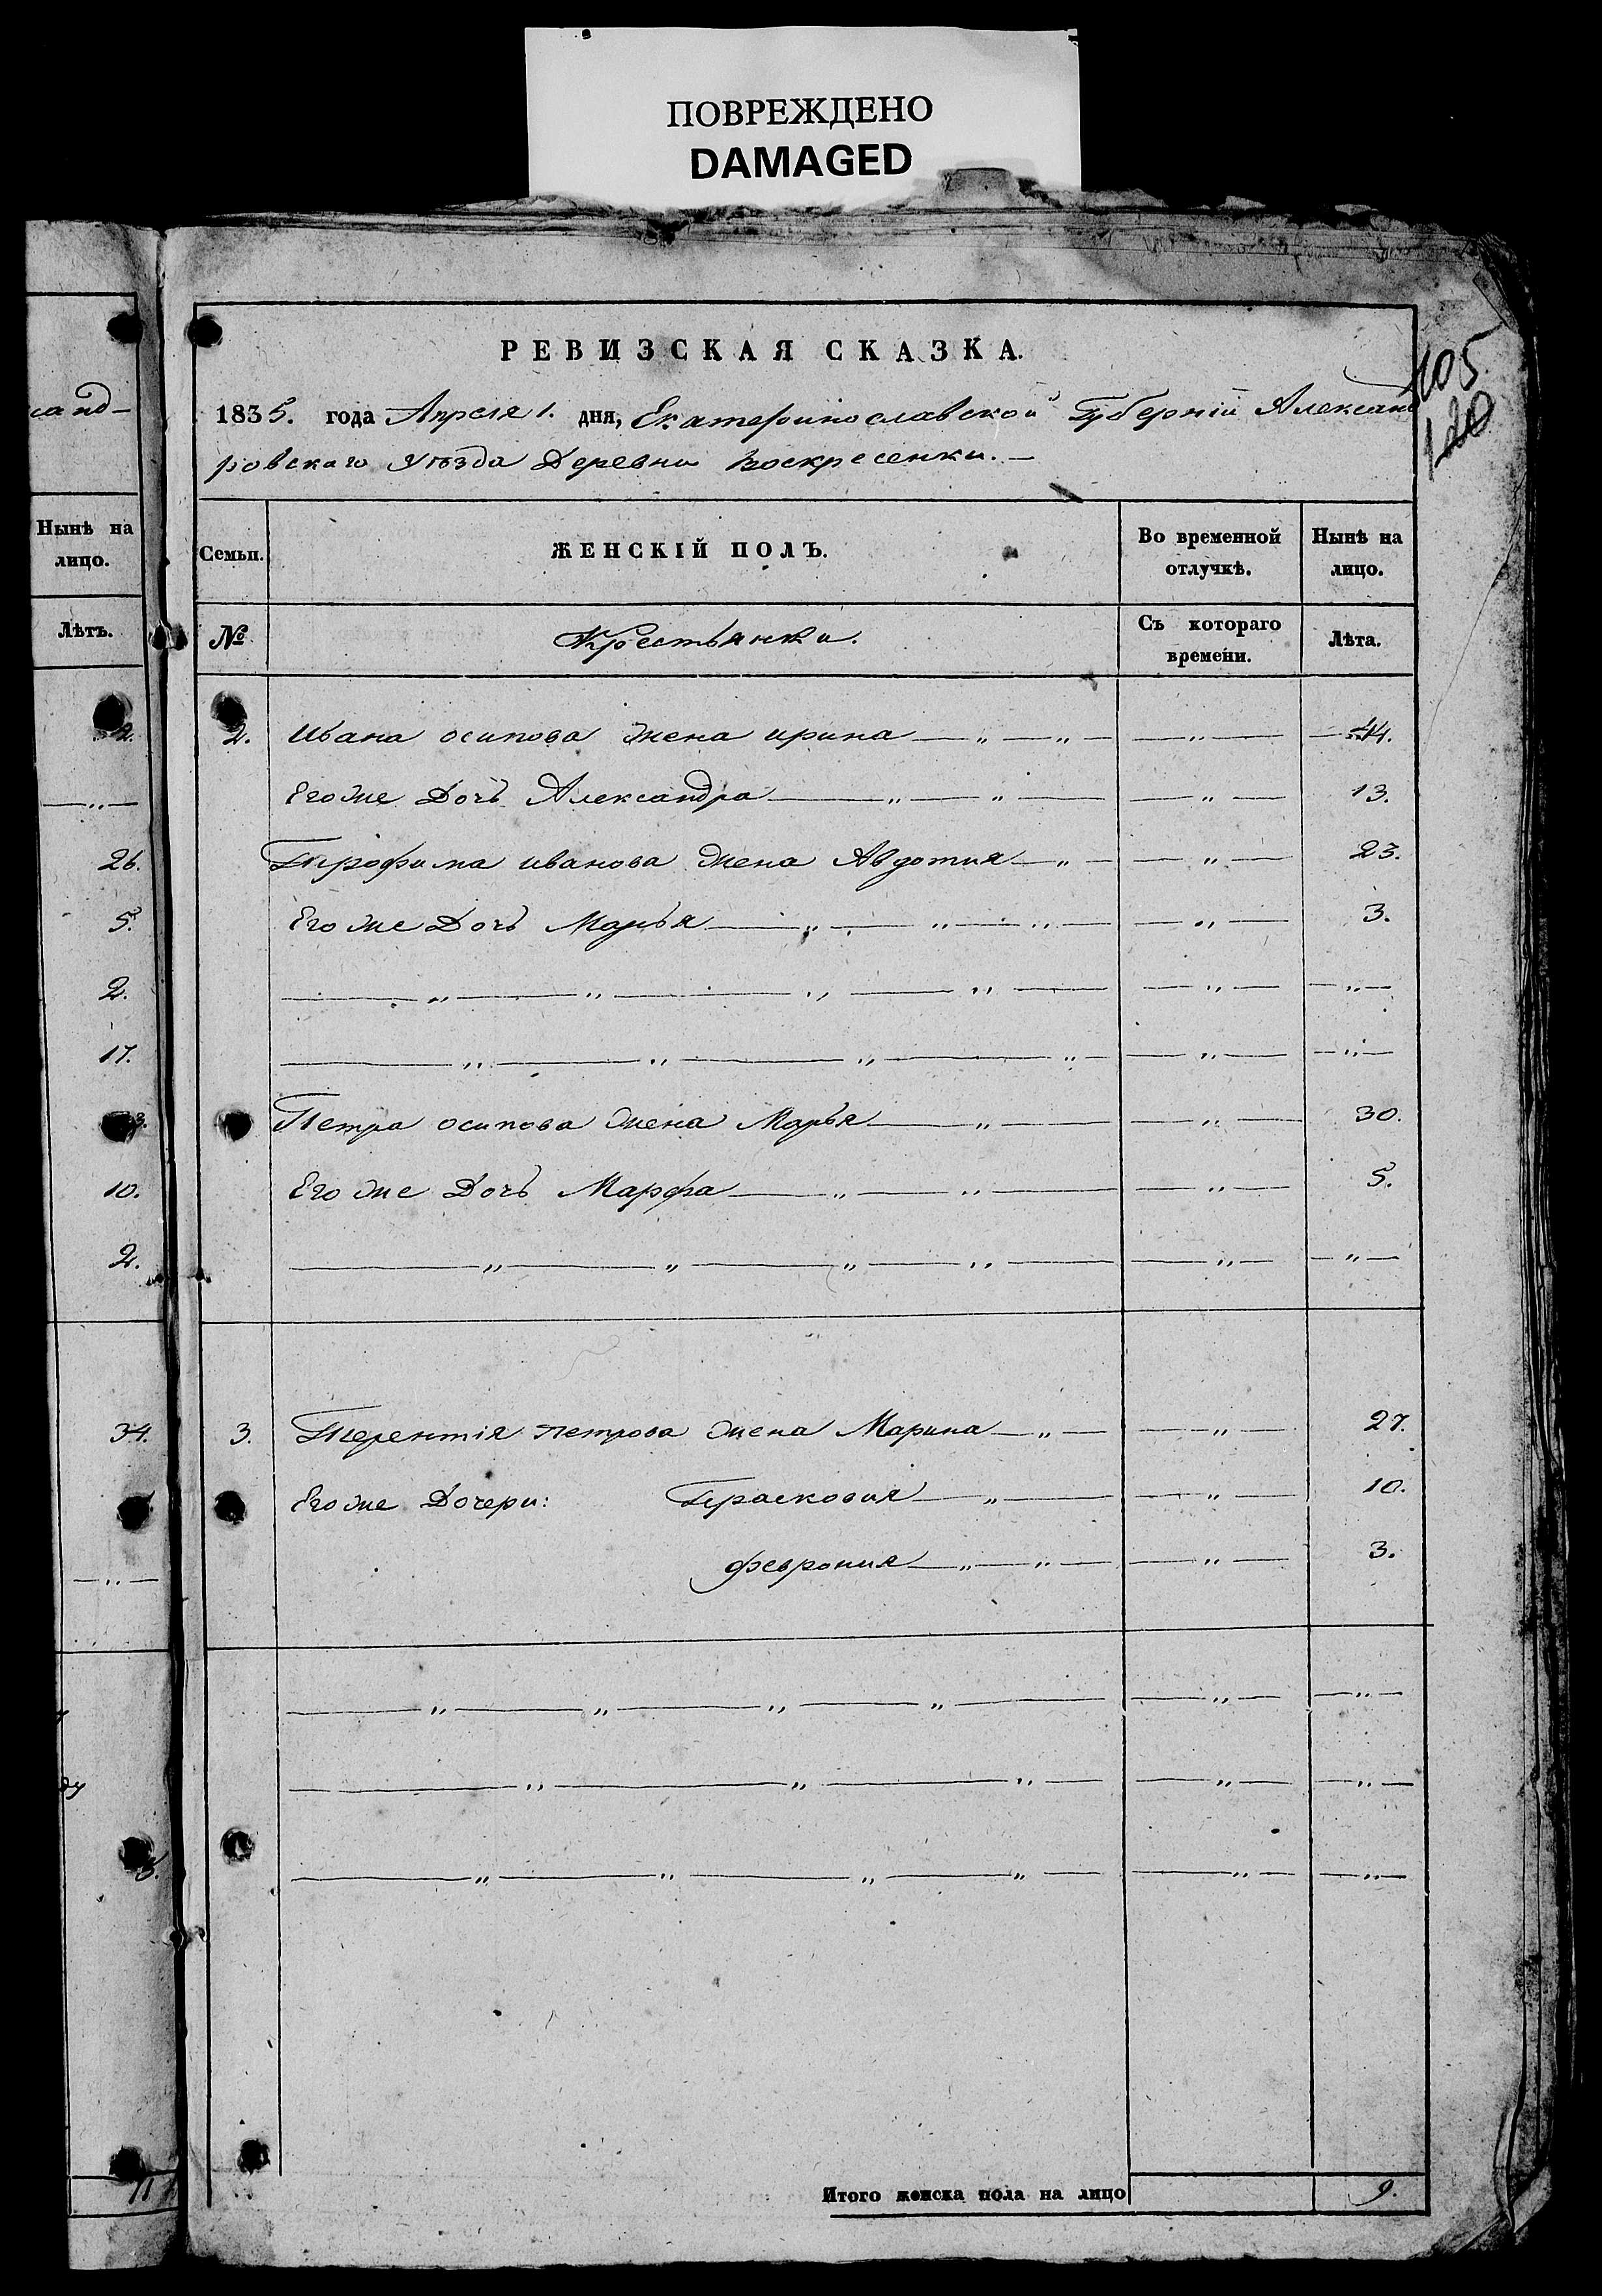 ПОВРЕЖДЕНО
DAMAGED
105.
120
РЕВИЗСКАЯ СКАЗКА.
1835. года Апреля 1. дня, Екатеринославской Губерніи Александ
ровскаго уѣзда Деревни Воскресенки. —
Семьи.
ЖЕНСКІЙ ПОЛЪ.
Во временной отлучкѣ.
Нынѣ на лицо.
№
Крестьянки.
Съ котораго времени.
Лѣта.
2. Ивана осипова жена ирина — „ — „ — „ — 44.
Егоже Дочь Александра — „ — „ — „ — 13.
Трофима иванова жена Авдотия — „ — „ — 23.
Его же Дочь Марья — „ — „ — „ — „ — 3.
— „ — „ — „ — „ — „ — „ —
— „ — „ — „ — „ — „ — „ —
Петра осипова жена Марья — „ — „ — 30.
Его же Дочь Марфа — „ — „ — „ — 5.
— „ — „ — „ — „ — „ — „ —
3. Терентія петрова жена Марина — „ — „ — 27.
Егоже Дочери: Прасковия — „ — „ — 10.
феврония — „ — „ — „ — 3.
— „ — „ — „ — „ — „ — „ —
— „ — „ — „ — „ — „ —
— „ — „ — „ — „ — „ — „ —
Итого женска пола на лицо 9.
санд-
Нынѣ на
лицо.
Лѣтъ.
2.
— „ —
26.
5.
2.
17.
3.
10.
2.
34.
— „ —
ду
11